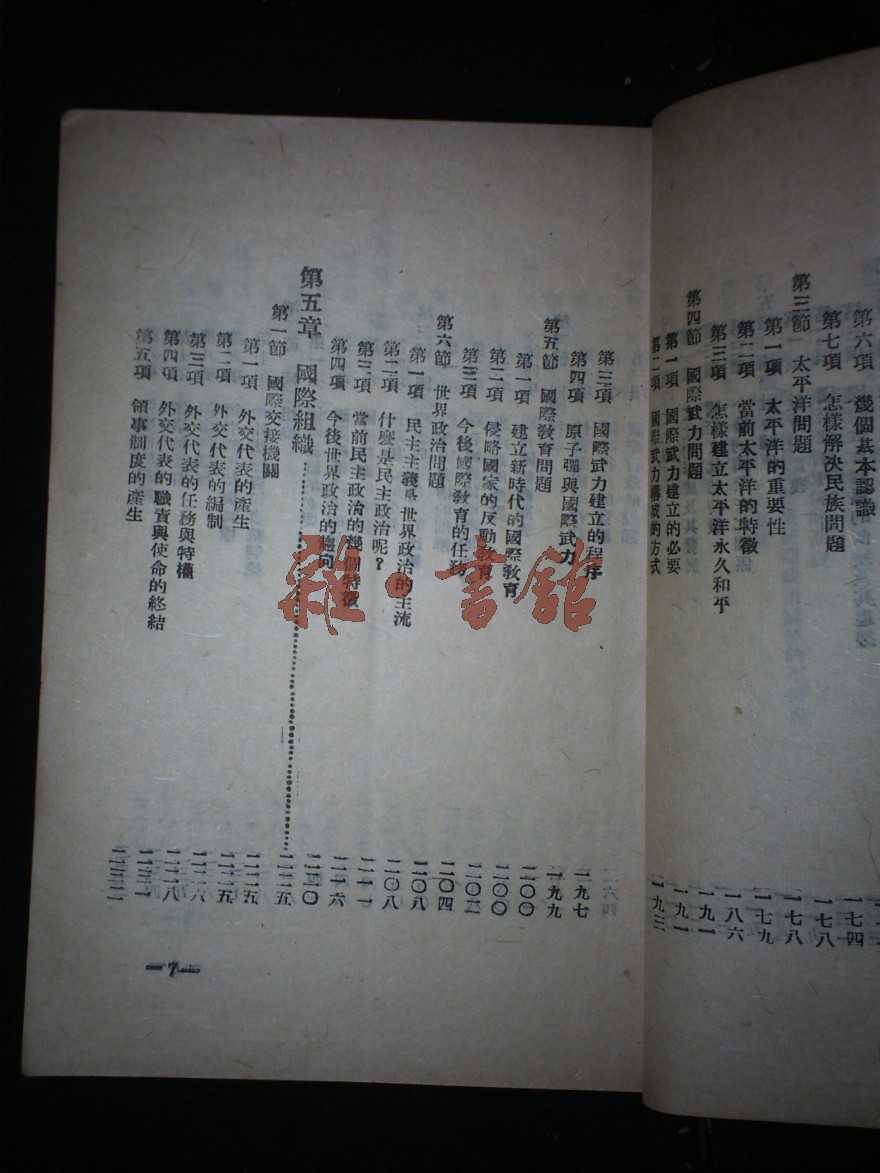 第六項 幾個基本認識 一七四
第七項 怎樣解決民族問題 一七八
第三節 太平洋問題 一七八
第一項 太平洋的重要性 一七九
第二項 當前太平洋的特徵 一八六
第三項 怎樣建立太平洋永久和平 一九一
第四節 國際武力問題 一九一
第一項 國際武力建立的必要
第二項 國際武力構成的方式
第三項 國際武力建立的程序 一九七
第四項 原子彈與國際武力 一九九
第五節 國際教育問題 二〇〇
第一項 建立新時代的國際教育 二〇〇
第二項 侵略國家的反動教育
第三項 今後國際教育的任務 二〇四
第六節 世界政治問題 二〇八
第一項 民主主義是世界政治的主流 二〇八
第二項 什麼是民主政治呢?
第三項 當前民主政治的幾個特徵 二一六
第四項 今後世界政治的趨向 二二〇
第五章 國際組織 二二五
第一節 國際交接機關 二二五
第一項 外交代表的產生 二二五
第二項 外交代表的編制 二二六
第三項 外交代表的任務與特權 二二八
第四項 外交代表的職責與使命的終結 二三一
第五項 領事制度的產生 二三二
—7—
雜·書館